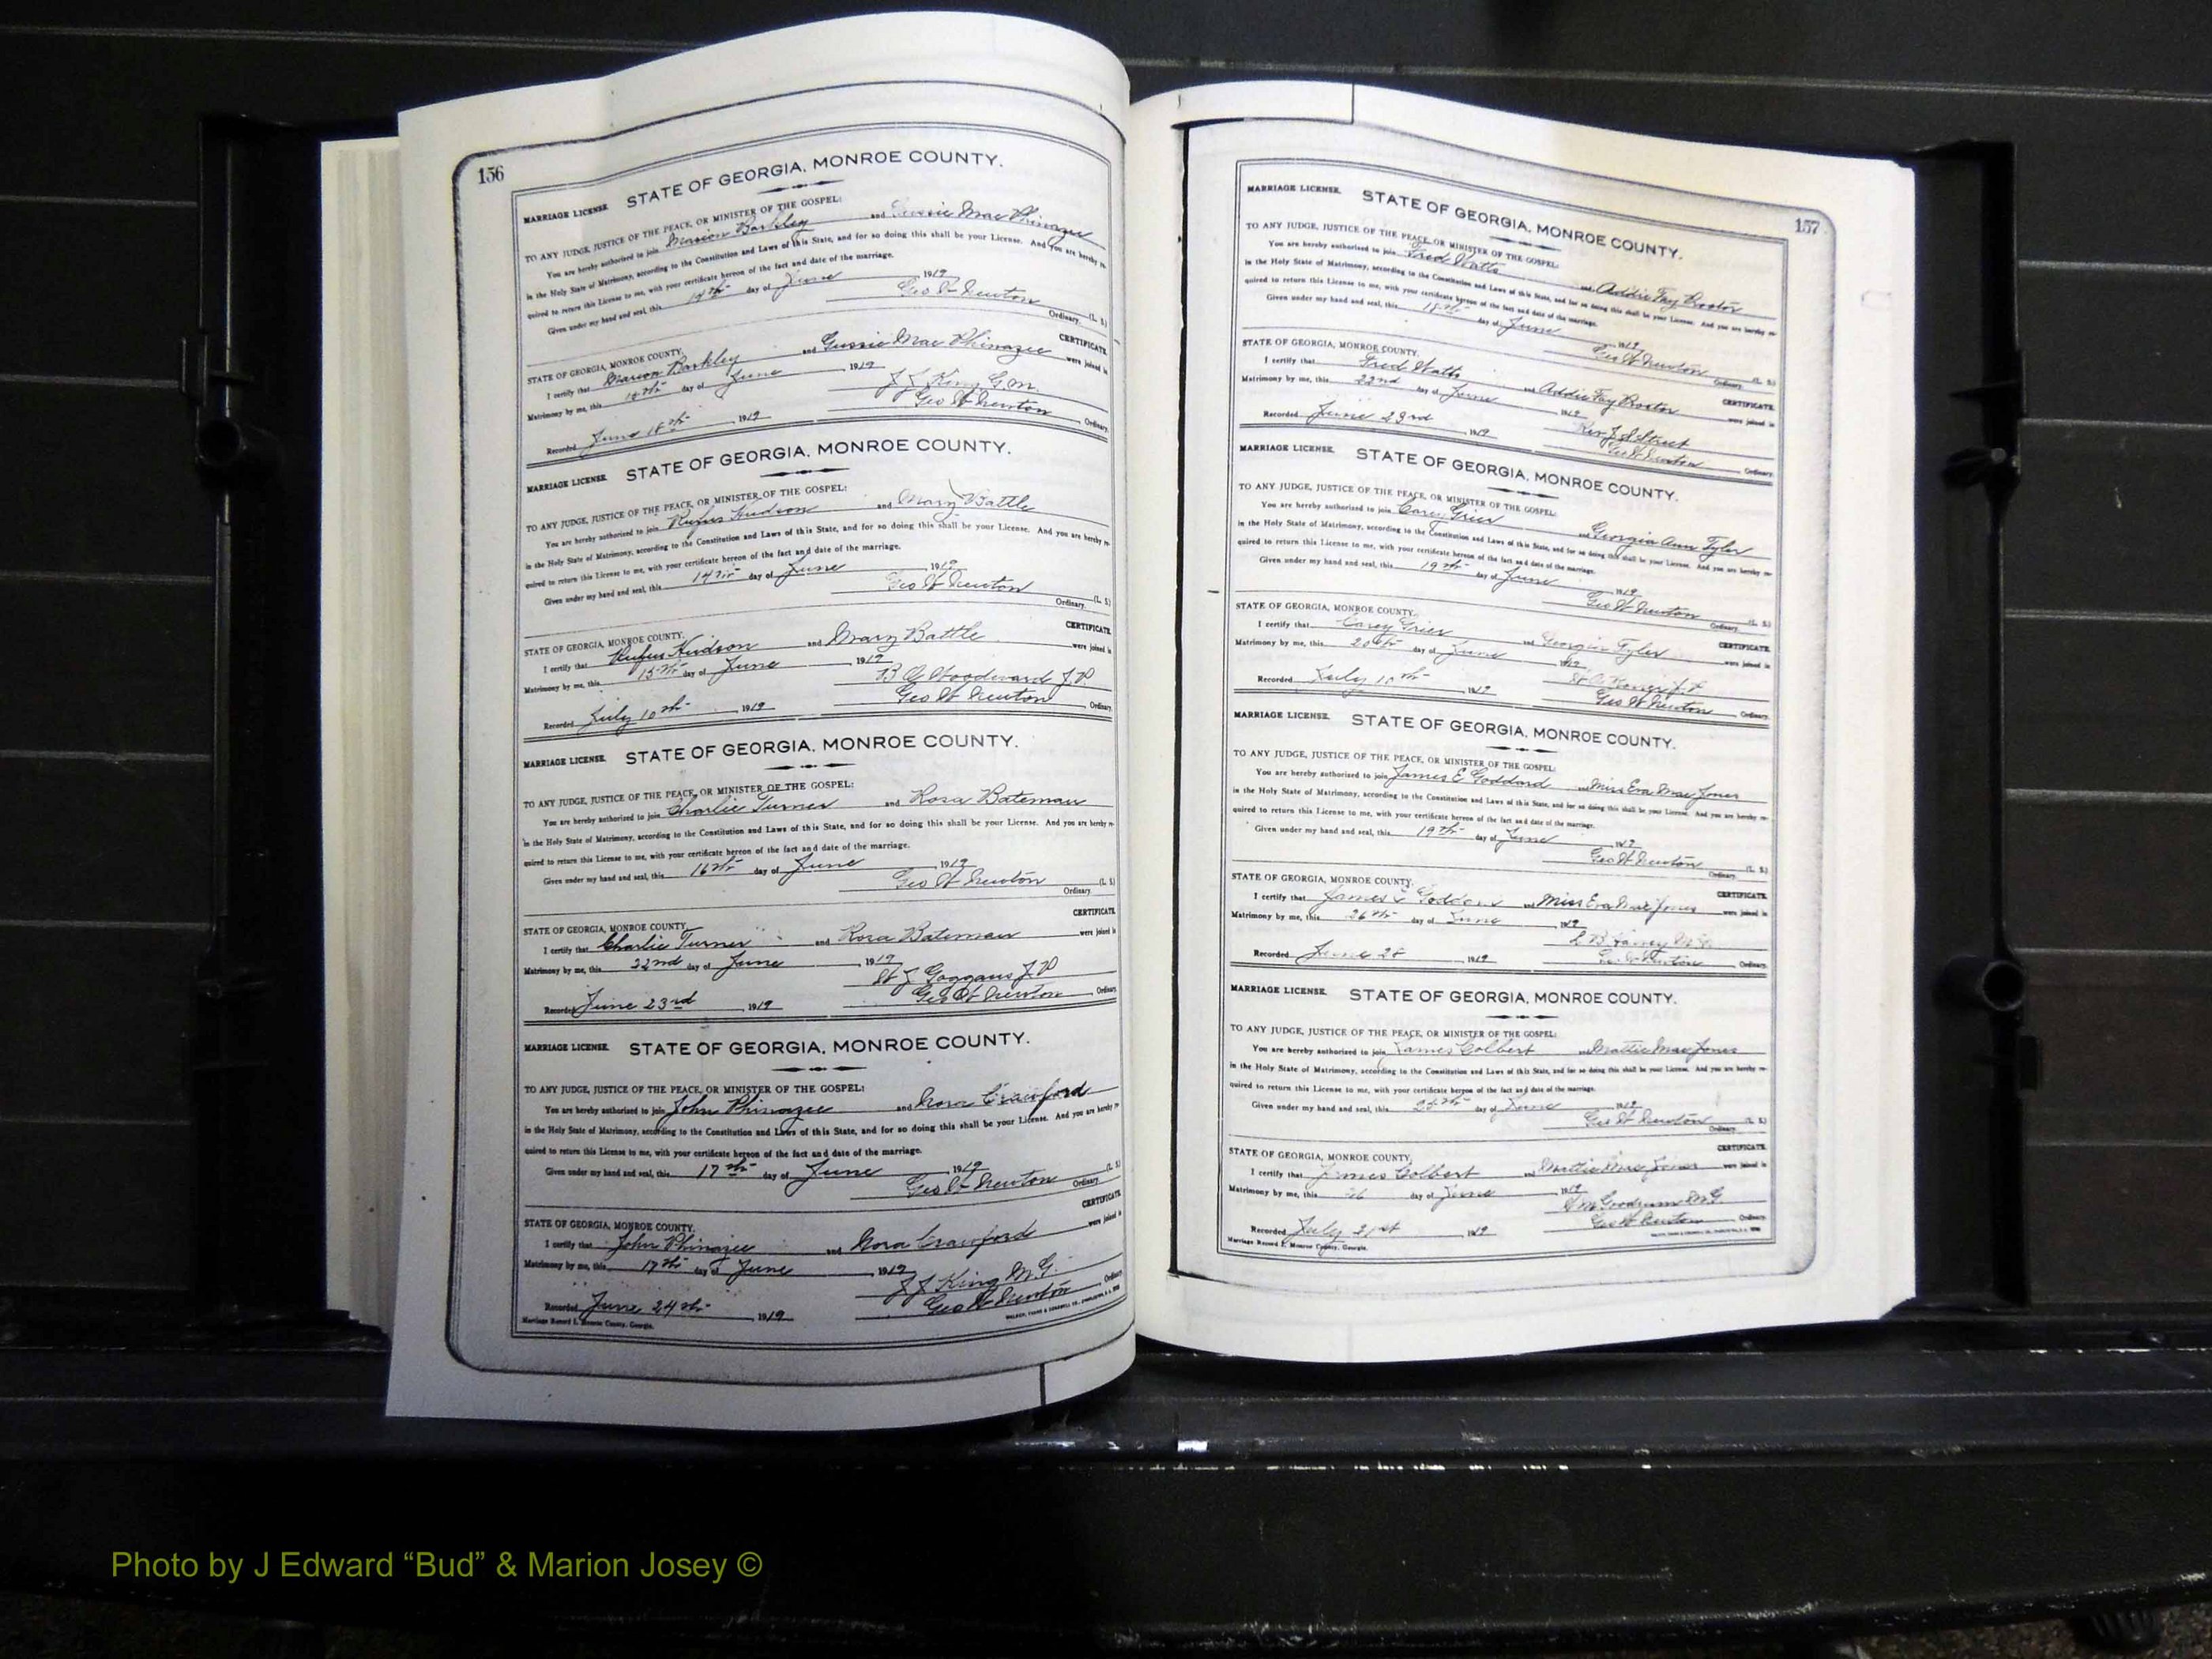 156
MARRIAGE LICENSE. STATE OF GEORGIA, MONROE COUNTY.
TO ANY JUDGE, JUSTICE OF THE PEACE, OR MINISTER OF THE GOSPEL:
You are hereby authorized to join Marion Barkley and Gussie Mae Phinazee
in the Holy State of Matrimony, according to the Constitution and Laws of this State, and for so doing this shall be your License. And you are hereby re-
quired to return this License to me, with your certificate hereon of the fact and date of the marriage.
Given under my hand and seal, this 14th day of June 1919
Geo W Newton (L. S.)
Ordinary.
STATE OF GEORGIA, MONROE COUNTY. CERTIFICATE.
I certify that Marion Barkley and Gussie Mae Phinazee were joined in
Matrimony by me, this day of June, 1919
J J King G.M.
Recorded June 18th, 1919 Geo W Newton Ordinary.
MARRIAGE LICENSE. STATE OF GEORGIA, MONROE COUNTY.
TO ANY JUDGE, JUSTICE OF THE PEACE, OR MINISTER OF THE GOSPEL:
You are hereby authorized to join Rufus Hudson and Mary Battle
in the Holy State of Matrimony, according to the Constitution and Laws of this State, and for so doing this shall be your License. And you are hereby re-
quired to return this License to me, with your certificate hereon of the fact and date of the marriage.
Given under my hand and seal, this 14th day of June, 1919
Geo W Newton (L. S.)
Ordinary.
STATE OF GEORGIA, MONROE COUNTY. CERTIFICATE.
I certify that Rufus Hudson and Mary Battle were joined in
Matrimony by me, this 15th day of June, 1919
Woodward J.P
Recorded July 10th, 1919 Geo W Newton Ordinary.
MARRIAGE LICENSE. STATE OF GEORGIA, MONROE COUNTY.
TO ANY JUDGE, JUSTICE OF THE PEACE, OR MINISTER OF THE GOSPEL:
You are hereby authorized to join Charlie Turner and Rosa Bateman
in the Holy State of Matrimony, according to the Constitution and Laws of this State, and for so doing this shall be your License. And you are hereby re-
quired to return this License to me, with your certificate hereon of the fact and date of the marriage.
Given under my hand and seal, this 16th day of June, 1919
Geo W Newton (L. S.)
Ordinary.
STATE OF GEORGIA, MONROE COUNTY. CERTIFICATE.
I certify that Charlie Turner and Rosa Bateman were joined in
Matrimony by me, this 22nd day of June, 1919
W J Goggans J.P
Recorded June 23rd, 1919 Geo W Newton Ordinary.
MARRIAGE LICENSE. STATE OF GEORGIA, MONROE COUNTY.
TO ANY JUDGE, JUSTICE OF THE PEACE, OR MINISTER OF THE GOSPEL:
You are hereby authorized to join John Phinazee and Nora Crawford
in the Holy State of Matrimony, according to the Constitution and Laws of this State, and for so doing this shall be your License. And you are hereby re-
quired to return this License to me, with your certificate hereon of the fact and date of the marriage.
Given under my hand and seal, this 17th day of June, 1919
Geo W Newton (L. S.)
Ordinary.
STATE OF GEORGIA, MONROE COUNTY. CERTIFICATE.
I certify that John Phinazee and Nora Crawford were joined in
Matrimony by me, this 17th day of June, 1919
J J King M.G.
Recorded June 24th, 1919 Geo W Newton Ordinary.
Marriage Record I. Monroe County, Georgia.
157
MARRIAGE LICENSE. STATE OF GEORGIA, MONROE COUNTY.
TO ANY JUDGE, JUSTICE OF THE PEACE, OR MINISTER OF THE GOSPEL:
You are hereby authorized to join Fred Watts and Addie Fay Proctor
in the Holy State of Matrimony, according to the Constitution and Laws of this State, and for so doing this shall be your License. And you are hereby re-
quired to return this License to me, with your certificate hereon of the fact and date of the marriage.
Given under my hand and seal, this 18th day of June, 1919
Geo W Newton (L. S.)
Ordinary.
STATE OF GEORGIA, MONROE COUNTY. CERTIFICATE.
I certify that Fred Watts and Addie Fay Proctor were joined in
Matrimony by me, this 22nd day of June, 1919
Rev J. Street
Recorded June 23rd, 1919 Geo W Newton Ordinary.
MARRIAGE LICENSE. STATE OF GEORGIA, MONROE COUNTY.
TO ANY JUDGE, JUSTICE OF THE PEACE, OR MINISTER OF THE GOSPEL:
You are hereby authorized to join Carey Grier and Georgia Ann Tyler
in the Holy State of Matrimony, according to the Constitution and Laws of this State, and for so doing this shall be your License. And you are hereby re-
quired to return this License to me, with your certificate hereon of the fact and date of the marriage.
Given under my hand and seal, this 19th day of June, 1919
Geo W Newton (L. S.)
Ordinary.
STATE OF GEORGIA, MONROE COUNTY. CERTIFICATE.
I certify that Carey Grier and Georgia Tyler were joined in
Matrimony by me, this 20th day of June, 1919
Recorded July 10th, 1919 Geo W Newton Ordinary.
MARRIAGE LICENSE. STATE OF GEORGIA, MONROE COUNTY.
TO ANY JUDGE, JUSTICE OF THE PEACE, OR MINISTER OF THE GOSPEL:
You are hereby authorized to join James E Goddard and Miss Eva Mae Jones
in the Holy State of Matrimony, according to the Constitution and Laws of this State, and for so doing this shall be your License. And you are hereby re-
quired to return this License to me, with your certificate hereon of the fact and date of the marriage.
Given under my hand and seal, this 19th day of June, 1919
Geo W Newton (L. S.)
Ordinary.
STATE OF GEORGIA, MONROE COUNTY. CERTIFICATE.
I certify that James E Goddard and Miss Eva Mae Jones were joined in
Matrimony by me, this 26th day of June, 1919
Recorded June 28, 1919 Geo W Newton Ordinary.
MARRIAGE LICENSE. STATE OF GEORGIA, MONROE COUNTY.
TO ANY JUDGE, JUSTICE OF THE PEACE, OR MINISTER OF THE GOSPEL:
You are hereby authorized to join James Colbert and Mattie Mae Jones
in the Holy State of Matrimony, according to the Constitution and Laws of this State, and for so doing this shall be your License. And you are hereby re-
quired to return this License to me, with your certificate hereon of the fact and date of the marriage.
Given under my hand and seal, this day of June, 1919
Geo W Newton (L. S.)
Ordinary.
STATE OF GEORGIA, MONROE COUNTY, CERTIFICATE.
I certify that James Colbert and Mattie Mae Jones were joined in
Matrimony by me, this 26 day of June, 1919
Goodrum M.G.
Recorded July 21st 1919 Geo W Newton Ordinary.
Marriage Record I. Monroe County, Georgia.
Photo by J Edward “Bud” & Marion Josey ©